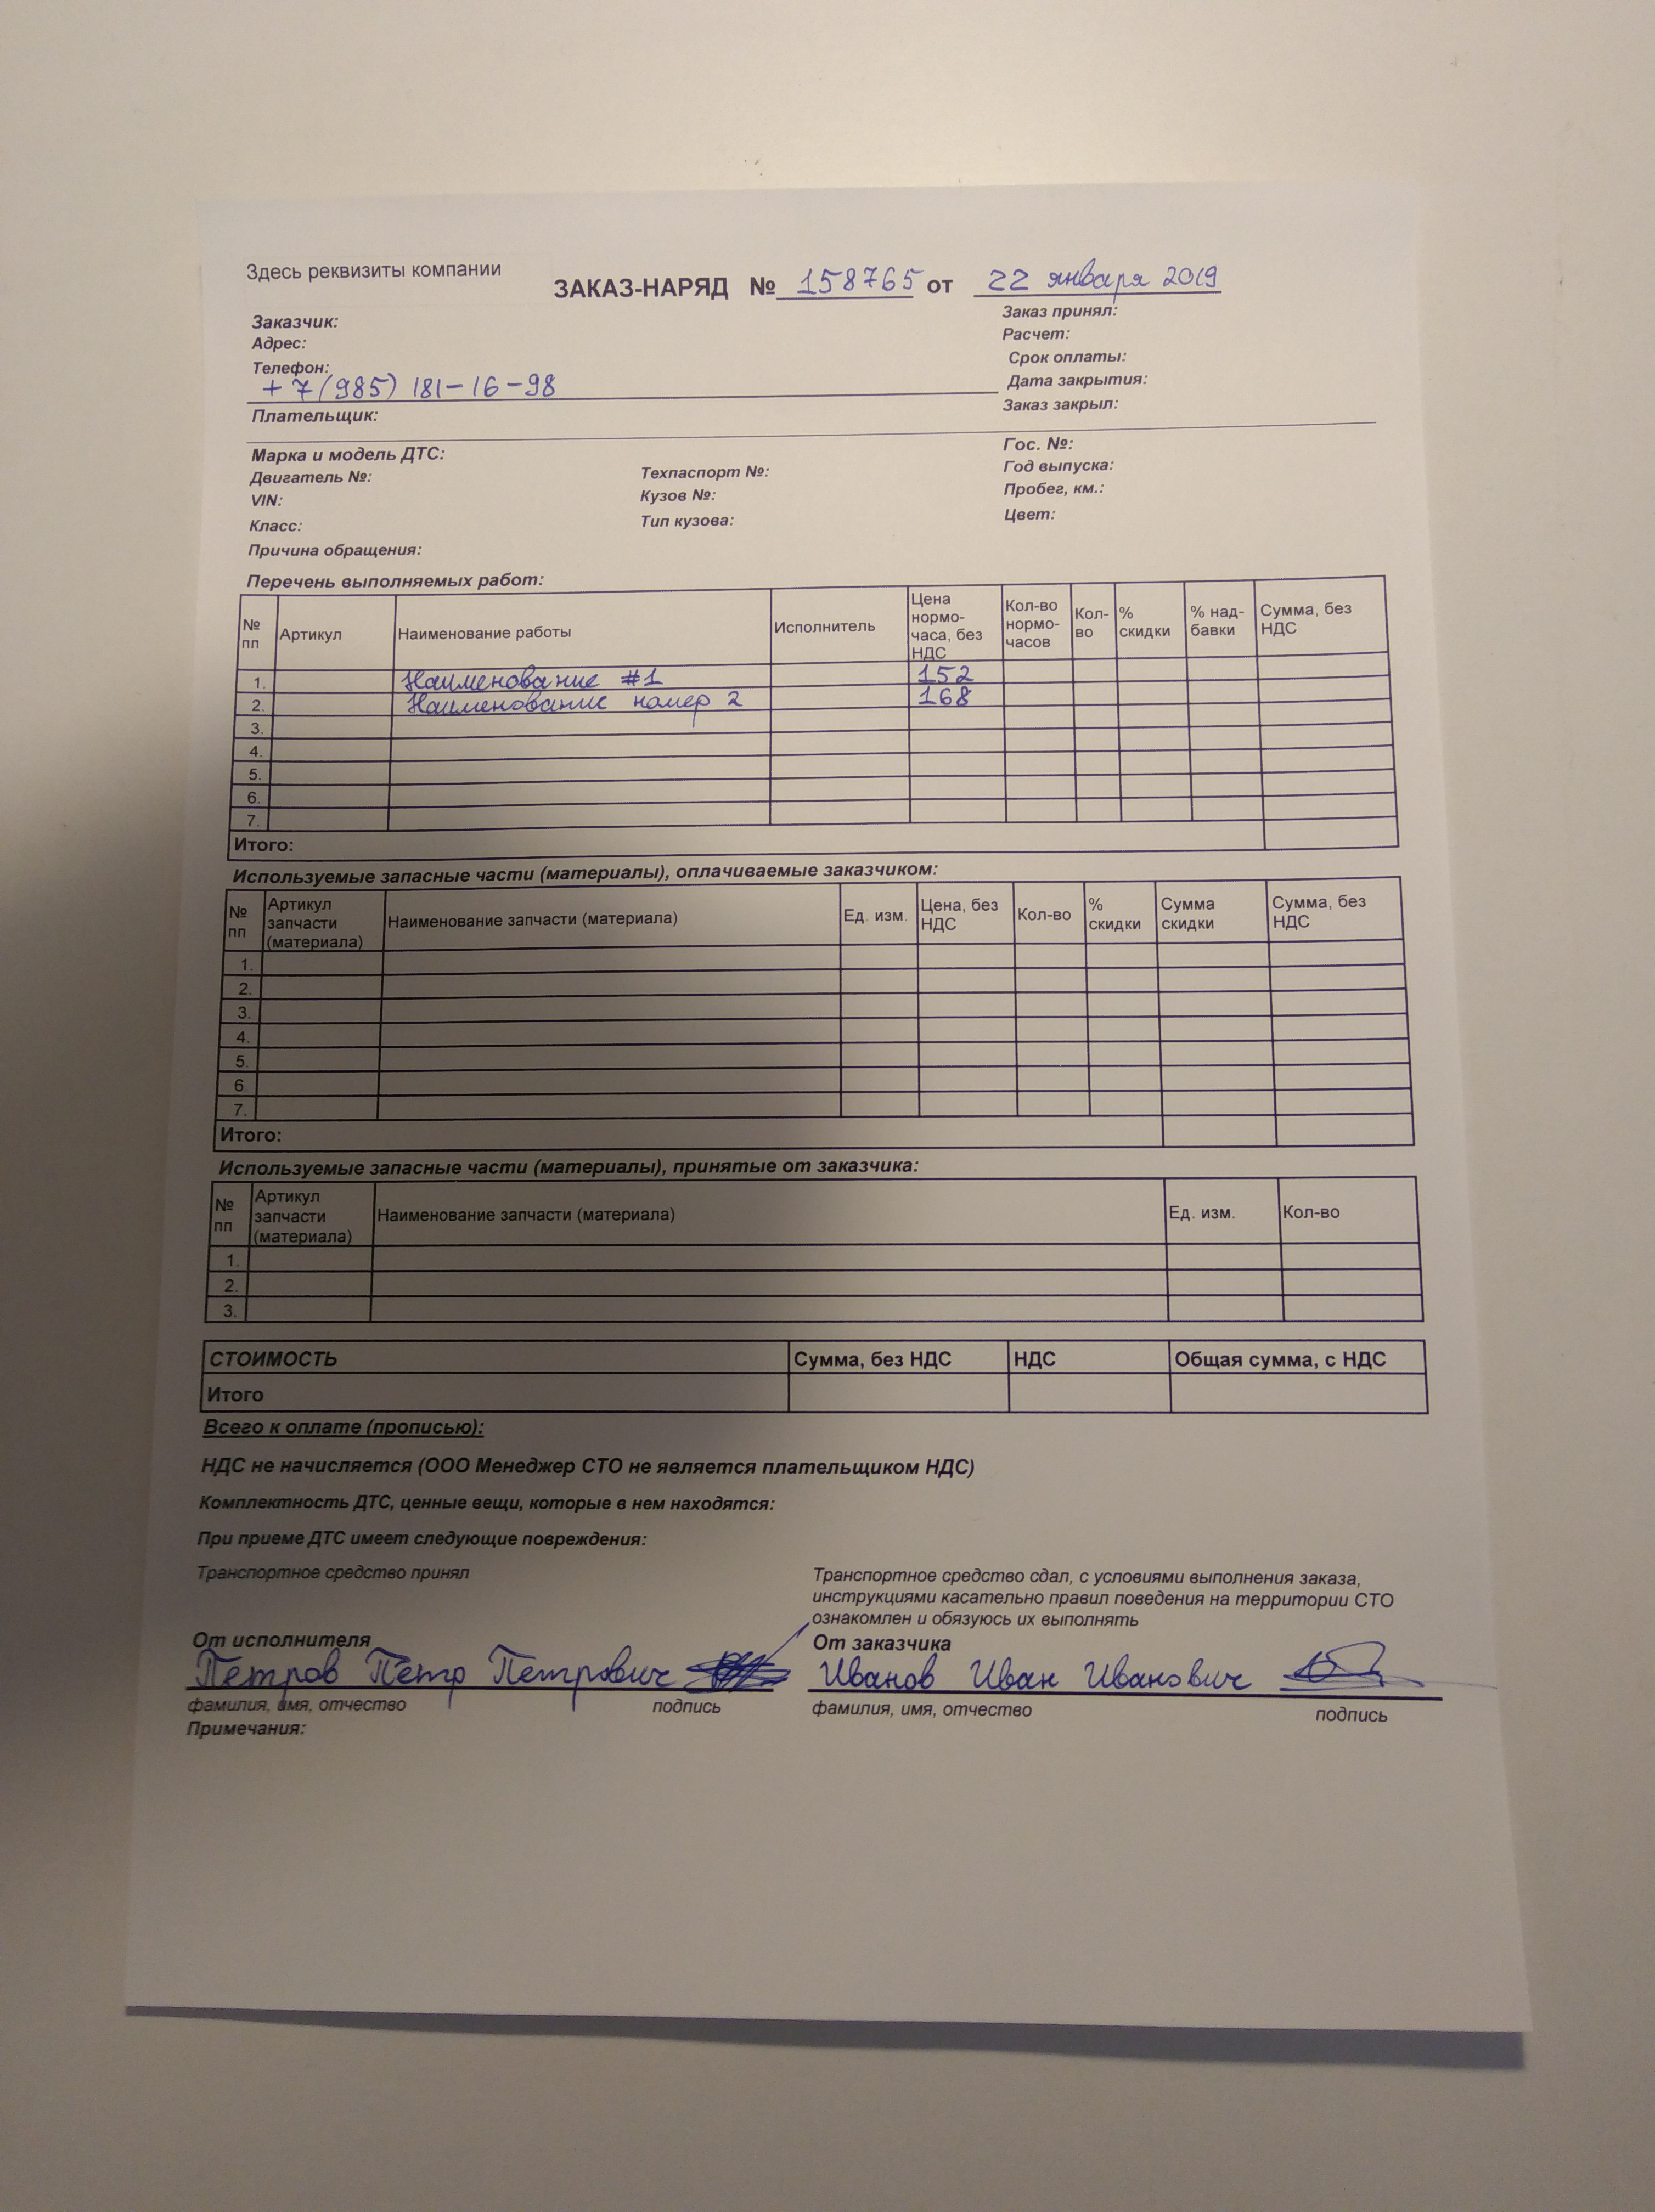 Здесь реквизиты компании
ЗАКАЗ-НАРЯД № 158765 от 22 января 2019
Заказчик: Заказ принял:
Адрес: Расчет:
Телефон: Срок оплаты:
+7(985) 181-16-98 Дата закрытия:
Плательщик: Заказ закрыл:
Марка и модель ДТС: Гос. №:
Двигатель №: Техпаспорт №: Год выпуска:
VIN: Кузов №: Пробег, км.:
Класс: Тип кузова: Цвет:
Причина обращения:
Перечень выполняемых работ:
№ пп Артикул Наименование работы Исполнитель Цена нормо-часа, без НДС Кол-во нормо-часов Кол-во % скидки % над-бавки Сумма, без НДС
1. Наименование #1 152
2. Наименование номер 2 168
3.
4.
5.
6.
7.
Итого:
Используемые запасные части (материалы), оплачиваемые заказчиком:
№ пп Артикул запчасти (материала) Наименование запчасти (материала) Ед. изм. Цена, без НДС Кол-во % скидки Сумма скидки Сумма, без НДС
1.
2.
3.
4.
5.
6.
7.
Итого:
Используемые запасные части (материалы), принятые от заказчика:
№ пп Артикул запчасти (материала) Наименование запчасти (материала) Ед. изм. Кол-во
1.
2.
3.
СТОИМОСТЬ Сумма, без НДС НДС Общая сумма, с НДС
Итого
Всего к оплате (прописью):
НДС не начисляется (ООО Менеджер СТО не является плательщиком НДС)
Комплектность ДТС, ценные вещи, которые в нем находятся:
При приеме ДТС имеет следующие повреждения:
Транспортное средство принял
Транспортное средство сдал, с условиями выполнения заказа,
инструкциями касательно правил поведения на территории СТО
ознакомлен и обязуюсь их выполнять
От исполнителя От заказчика
Петров Пётр Петрович Иванов Иван Иванович
фамилия, имя, отчество подпись фамилия, имя, отчество подпись
Примечания: